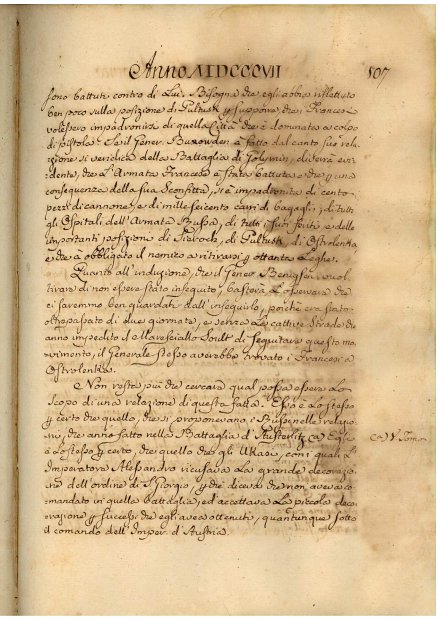 Anno MDCCCVII 507
sono battuti contro di Lui. Bisogna che egli abbia riflettuto
ben poco sulla posizione di Pultusk p supporre, che i Francesi
volessero impadronirsi di quella Città che è dominata a colpo
di pistola. Se il Gener. Buxowden à fatto dal canto suo rela-
zione sì veridica della Battaglia di Golymin, di serrà evi-
dente, che l'Armata Francese è stata battuta e che p una
conseguenza della sua Sconfitta, si è impadronita di cento
pezzi di cannone, e di mille seicento carri di bagagli; di tutti
gli Ospitali dell'Armata Russa, di tutti i suoi feriti e delle
importanti posizioni di Sierock, di Pultusk, di Ostrolenka
e che à obbligato il nemico a ritirarsi p ottanta Leghe.
Quanto all'induzione, che il Gener. Benigsen vuol
tirare di non essere stato inseguito, basterà l'osservare che
ci saremmo ben guardati dall'inseguirlo, poichè era stato
oltrepassato di due giornate, e senza le cattive strade che
anno impedito il Maresciallo Soult di seguitare questo mo-
vimento, il Generale Russo averebbe trovato i Francesi a
Ostrolenka.
Non resta più che cercare qual possa essere lo
Scopo di una relazione di questa fatta. Esso è lo stesso
p certo che quello, che si proponevano i Russi nelle relazio-
ni, che anno fatto nella Battaglia d'Austerlitz (a) Egli
è lo stesso p certo, che quello che gli Ukasi, con i quali l'
Imperatore Alessandro ricusava la grande decorazio-
ne dell'ordine di S. Giorgio, p che diceva che non aveva co-
mandato in quella battaglia, ed accettava la piccola deco-
razione p successi che egli avea ottenuti, quantunque sotto
il comando dell'Imper. d'Austria.
(a) V. Tomo